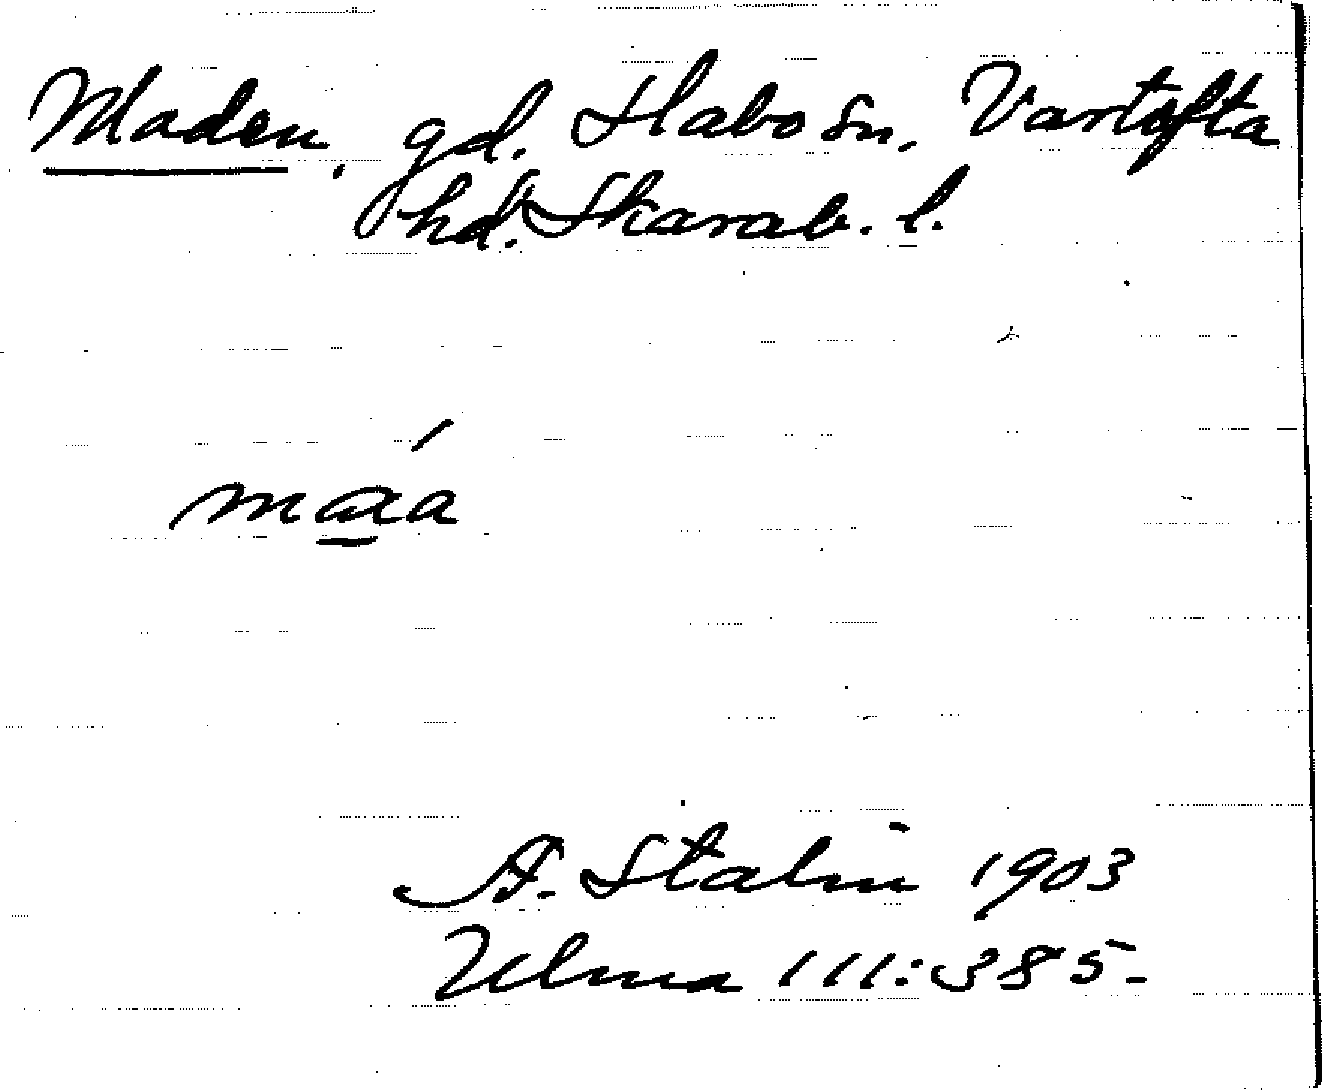 Maden, gd. Habo sn, Vartofta
hd. Skarab. l.
maa
A. Stalin 1903
Ulma 111:385.